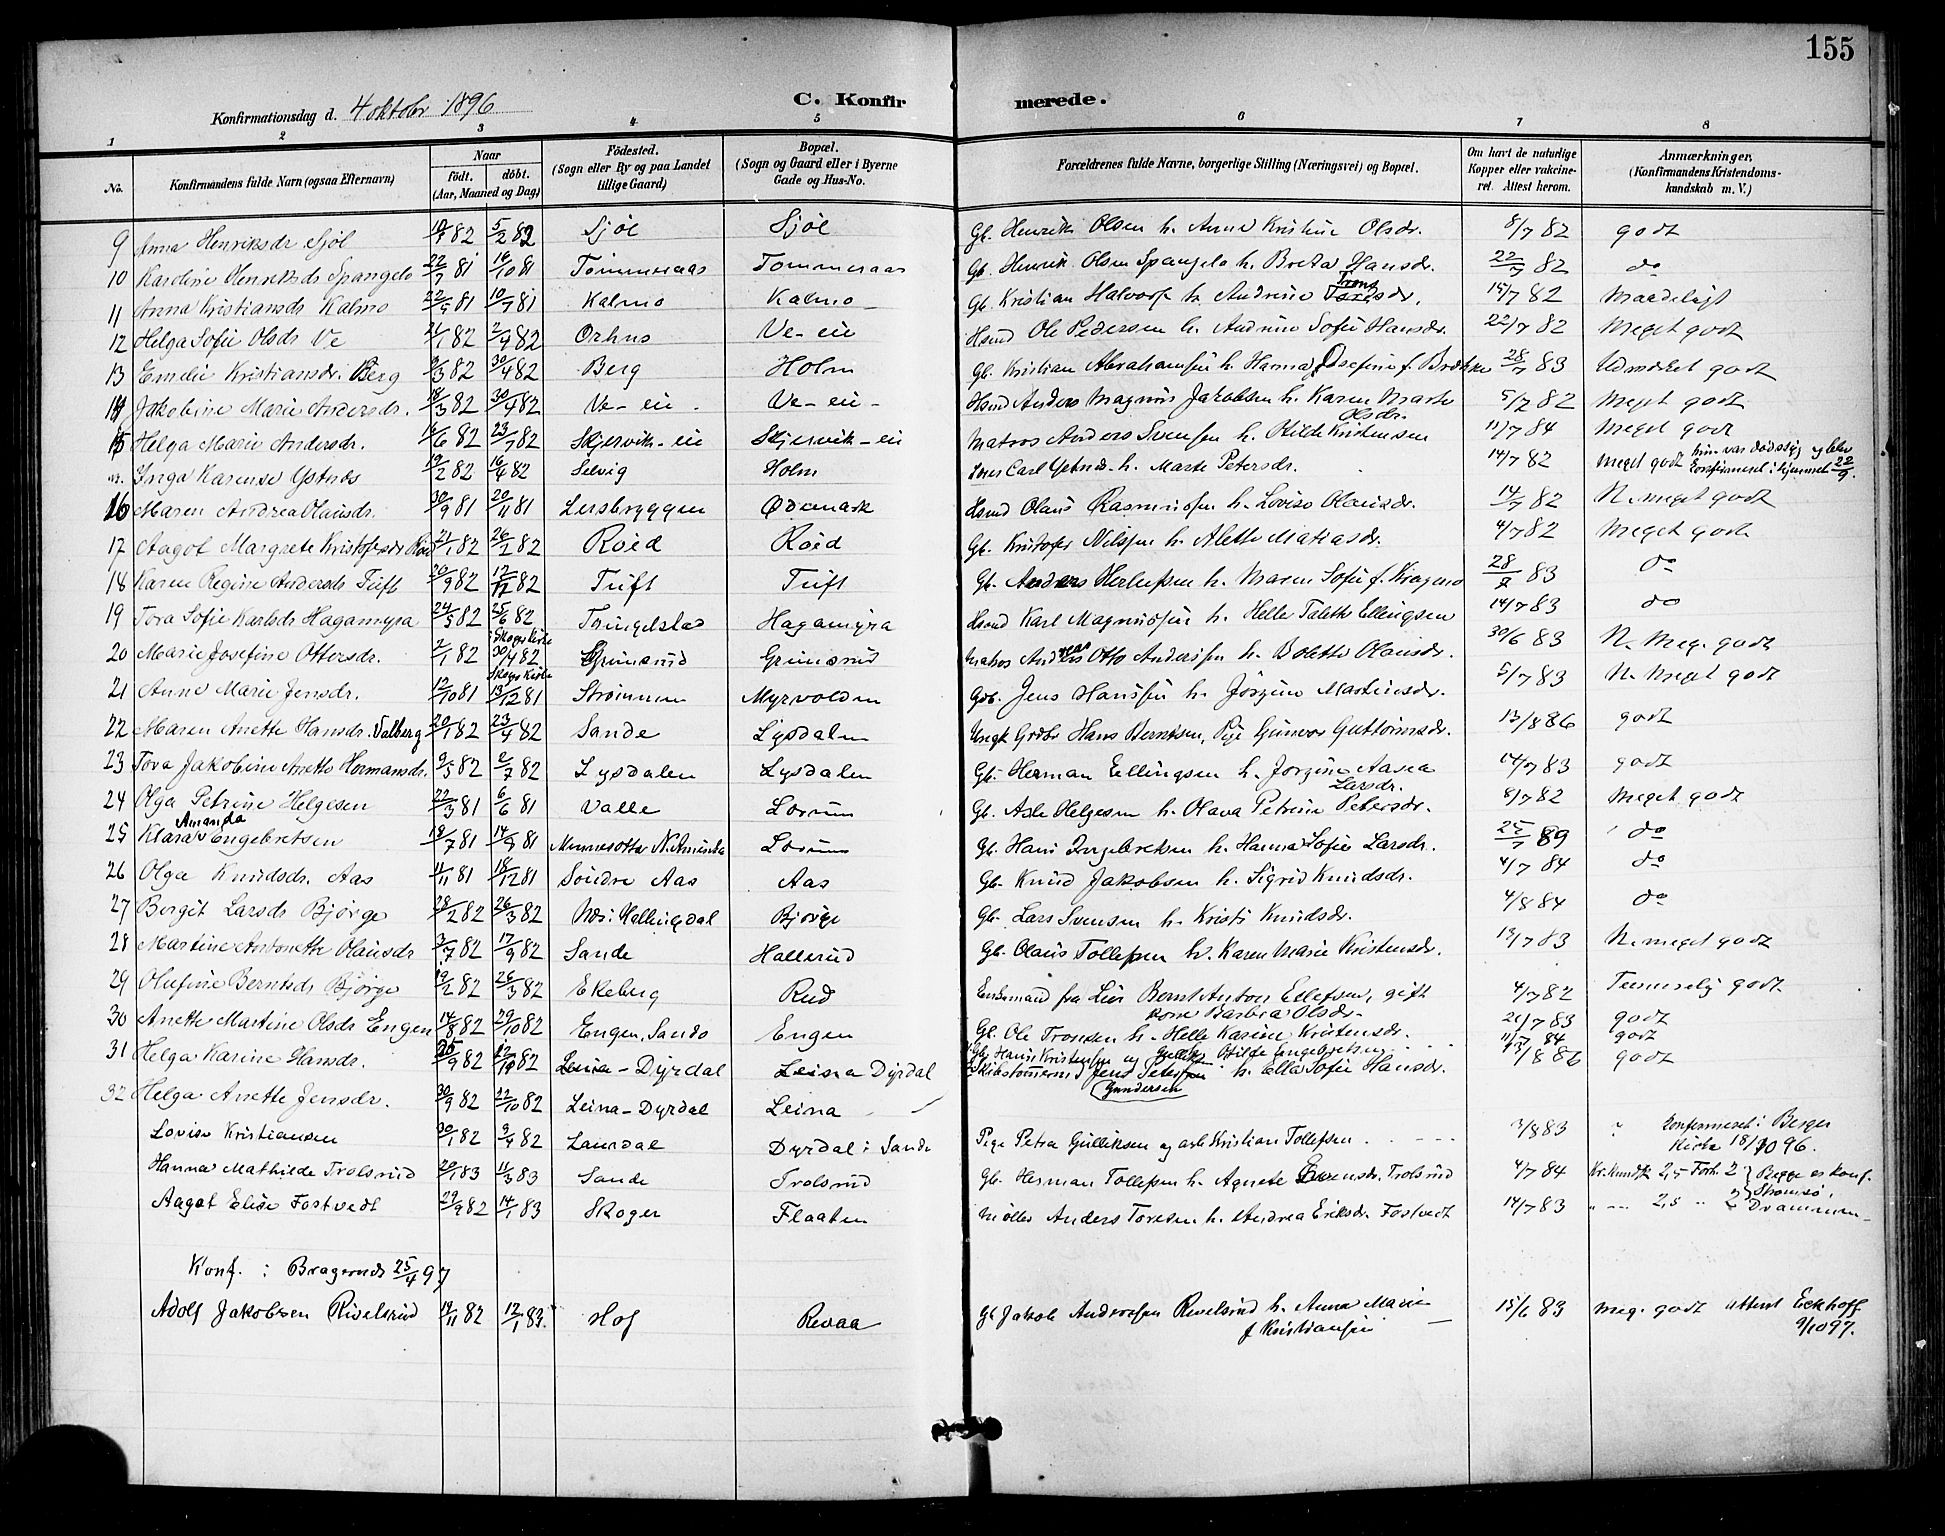 155
Konfirmationsdag d. 4 oktobr 1896
C. Konfirmerede.
1 2 3 4 5 6 7 8
No. Konfirmandens fulde Navn (ogsaa Efternavn) Naar födt. döbt. (Aar, Maaned og Dag) Födested. (Sogn eller By og paa Landet tillige Gaard) Bopæl. (Sogn og Gaard eller i Byerne Gade og Hus-No. Forældrenes fulde Navne, borgerlige Stilling (Næringsvei) og Bopæl. Om havt de naturlige Kopper eller vakcineret. Attest herom. Anmærkninger. (Konfirmandens Kristendomskundskab m. V.)
9 Anna Henriksdr Sjöl 82 5/2 82 Sjöl Sjöl Gb. Henrik Olsen h. Anne Kristine Olsdr. 8/7 82 godt
10 Karoline Henriksdr Spangelo 22/7 81 16/10 81 Tommeraas Tommeraas Gb. Henrik Olsen Spangelo h. Breta Hansdr. 22/7 82 do
11 Anna Kristiansdr Kalmo 22/5 81 10/7 81 Kalmo Kalmo Gb. Kristian Halvors. h. Andrine 15/7 82 Maadeligt
12 Helga Sofie Olsdr Ve 21/1 82 2/4 82 Orhus Ve-eie Hsmd Ole Pedersen h. Andrine Sofie Hansdr. 22/7 82 Meget godt
13 Emelie Kristiansdr. Berg 9/3 82 30/4 82 Berg Holm Gb. Kristian Abrahamsen h. Hanna Josefine f. 28/7 83 Udmærket godt
14 Jakobine Marie Andersdr. 18/3 82 30/4 82 Ve-eie Ve-eie Hsmd Anders Magnus Jakobsen h. Karen Marte Olsdr. 5/7 82 Meget godt
15 Helga Marie Andersdr. 82 23/7 82 Skjervik-eie Skjervik-eie Matros Anders Svensen h. Otilde Kristensen 11/7 84 Meget godt
Inga Karense Ystnes 19/2 82 16/4 82 Selvig Holm Carl Ystnes h. Marte Petersdr. 14/7 82 Meget godt hun var dødssyg og blev konfirmeret i hjemmet 22/9.
16 Maren Andrea Olausdr. 30/9 81 20/11 81 Lersbryggen Ødemark Hsmd Olaus Rasmussen h. Lovise Olausdr. 14/7 82 N. meget godt
17 Aagot Margrete Kristofersdr Röed 21/1 82 26/2 82 Röed Röed Gb. Kristofer Nilssen h. Alette Matiasdr. 4/7 82 Meget godt
18 Karen Regine Andersdr Tuft 20/9 82 82 Tuft Tuft Gb. Anders Herlufsen h. Maren Sofie f. Kragemo 28/7 83 do
19 Tora Sofie Karlsdr Hagamyra 24/5 82 25/6 82 Tringelstad Hagamyra Hsmd Karl Magnussen h. Helle Talette Ellingsen 14/7 83 do
20 Marie Josefine Ottersdr. 2/1 82 Skoger Kirke 30/4 82 Grimsrud Grimsrud Matros Andreas Otto Anderssen h. Bolette Olausdr. 30/6 83 N. Meg. godt
21 Anne Marie Jensdr. 12/10 81 Skoger Kirke 13/12 81 Strömmen Myrvolden Gdb. Jens Hanssen h. Jörgine Martinsdr. 5/7 83 N. Meget godt
22 Maren Anette Hansdr. Valberg 20/1 82 23/4 82 Sande Lysdalen Ungk Grdbr Hans Berntsen, Pige Gunvor Guttormsdr. 13/8 86 godt
23 Tora Jakobine Anette Hermansdr. 9/5 82 2/7 82 Lysdalen Lysdalen Gb. Herman Ellingsen h. Jorgine Aasea Larsdr. 14/7 83 godt
24 Olga Petrine Helgesen 22/3 81 6/6 81 Valle Lorum Gb. Asle Helgesen h. Olava Petrine Petersdr. 8/7 82 Meget godt
25 Klara Amanda Engebretsen 18/7 81 14/9 81 Minnesotta N. Amerika Lorum Gb. Hans Ingebretsen h. Hanna Sofie Larsdr. 25/7 89 do
26 Olga Knudsdr. Aas 1/11 81 18/12 81 Söndre Aas Aas Gb. Knud Jakobsen h. Sigrid Knudsdr. 4/7 84 do
27 Bergit Larsdr Björge 28/2 82 26/3 82 Hallingdal Björge Gb. Lars Svensen h. Kristi Knudsdr. 4/8 84 do
28 Martine Antonette Olausdr 3/7 82 17/9 82 Sande Hallerud Gb. Olaus Tollefsen h. Karen Marie Kristensdr. 13/7 83 N. meget godt
29 Olufine Berntsdr Björge 19/2 82 26/3 82 Ekeberg Rud Enkemand fra Lier Bernt Anton Ellefsen, gift kone Barbra Olsdr. 4/7 82 Temmelig godt
30 Anette Martine Olsdr Engen 14/8 82 29/10 82 Engen, Sande Engen Gb. Ole Tronsen h. Helle Karine Kristensdr. 21/7 83 godt
31 Helga Karine Hansdr. 25/9 82 82 Leina-Dyrdal Leina Dyrdal Gb. Hans Kristensen og Otilde Engebretsen 11/7 84 godt
32 Helga Anette Jensdr. 30/9 82 22/10 82 Leina-Dyrdal Leina Skibstömmermd Jens Petersen Gundersen h. Ella Sofie Hansdr. /8 86 godt
Lovise Kristiansen 30/1 82 9/4 82 Laurdal Dyrdal i Sande Pige Petra Gulliksen og arb Kristian Tollefsen 3/8 83 Konfirmeret i Berger Kirke 18/10 96.
Hanna Mathilde Trolsrud 20/1 83 11/3 83 Sande Trolsrud Gb. Herman Tollefsen h. Agnete Trolsrud 4/7 84 Kr. Kundsk 2,5 Forh. 2 } Begge er konf. Strömsö, Drammen
Aagot Elise Fostvedt 29/9 82 14/1 83 Skoger Flaaten Möller Anders Toresen h. Andrea Eriksdr. Fostvedt 14/7 83 " 2,5 " 2
Konf. i Bragernes 25/4 97
Adolf Jakobsen Rivelsrud 14/11 82 12/1 83. Hof Revaa Gb Jakob Anderssen Revelsrud h. Anna Marie f Kristiansen 15/6 83 Meg. godt attest Eckhoff 9/10 97.